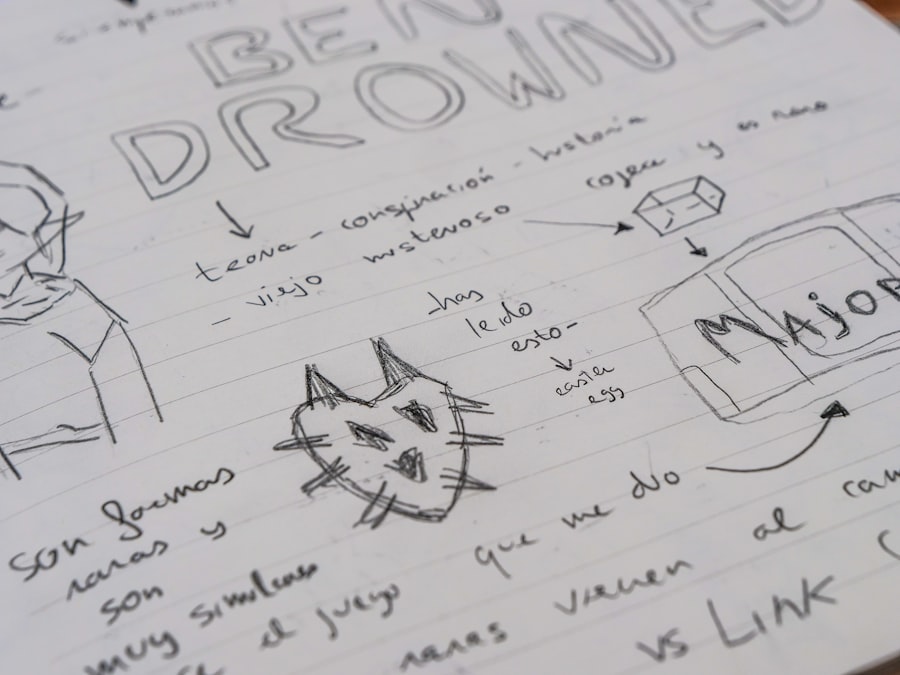 BEN
DROWNED
teoria - conspiración - historia
- viejo misterioso
cojea y es raro
-has
leido
esto-
easter
egg
MAjOR
son formas
raras y
son
muy similares
el juego
que me dio
raras vienen al
vs LINK